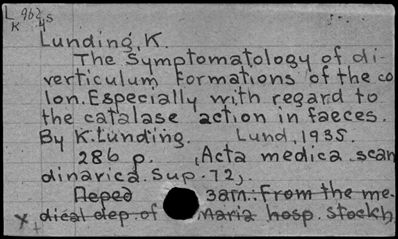 L 962 s
K 4
Lunding, K.
The Symptomatology of di-
verticulum formations of the co
lon. Especially with regard to
the catalase action in faeces.
By K. Lunding. Lund, 1935.
286 p. (Acta medica scan
dinavica. Sup. 72).
from the me-
dical dep. of Maria hosp. Stockh